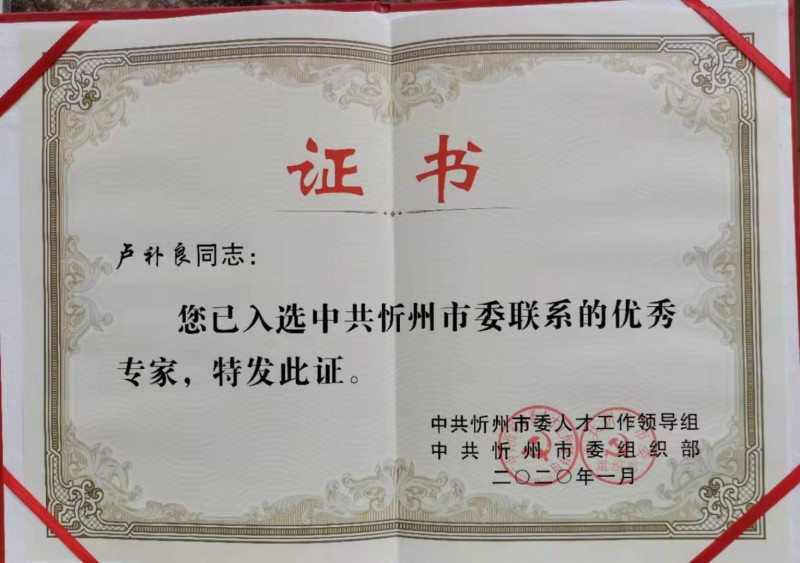 证书
卢补良同志：
您已入选中共忻州市委联系的优秀
专家，特发此证。
中共忻州市委人才工作领导组
中共忻州市委组织部
二〇二〇年一月
组织部